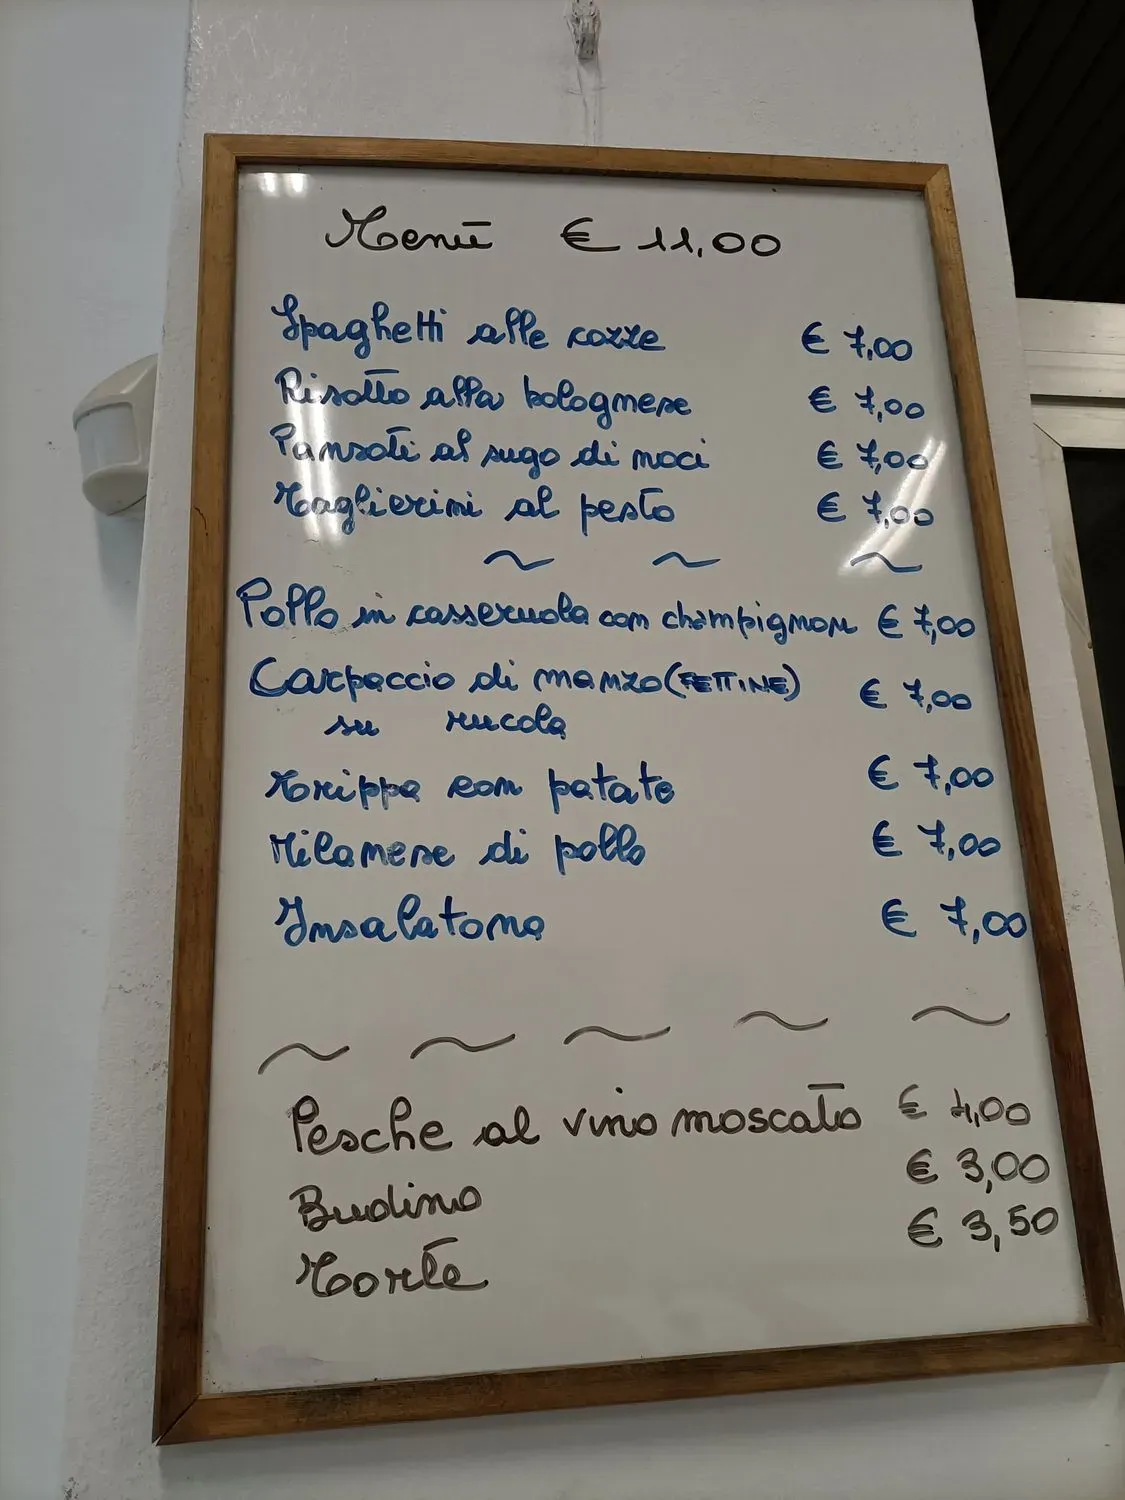 Menù € 11,00
Spaghetti alle cozze € 7,00
Risotto alla bolognese € 7,00
Pansoti al sugo di noci € 7,00
Taglierini al pesto € 7,00
~ ~ ~
Pollo in casseruola con champignon € 7,00
Carpaccio di manzo (FETTINE) € 7,00
su rucola
Trippa con patate € 7,00
Milanese di pollo € 7,00
Insalatona € 7,00
~ ~ ~ ~ ~
Pesche al vino moscato € 4,00
Budino € 3,00
Torte € 3,50